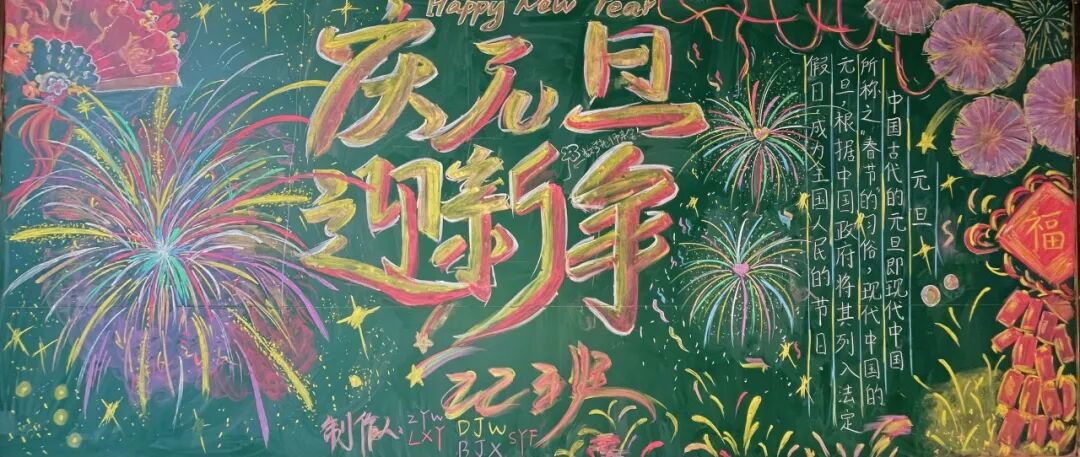 Happy New Year
庆元旦
迎新年
22班
制作人:ZYW DJW SYF
LXY BJX
元旦
中国古代的元旦即现代中国
所称之“春节”的习俗,现代中国的
元旦,根据中国政府将其列入法定
假日,成为全国人民的节日.
福